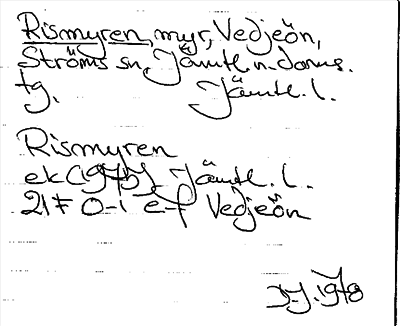 Rismyren, myr, Vedjeön,
Ströms sn, Jämtl. n. doms.
tg. Jämtl. l.
Rismyren
ek (1975) Jämtl. l.
21F 0-1 e-f Vedjeön
1978